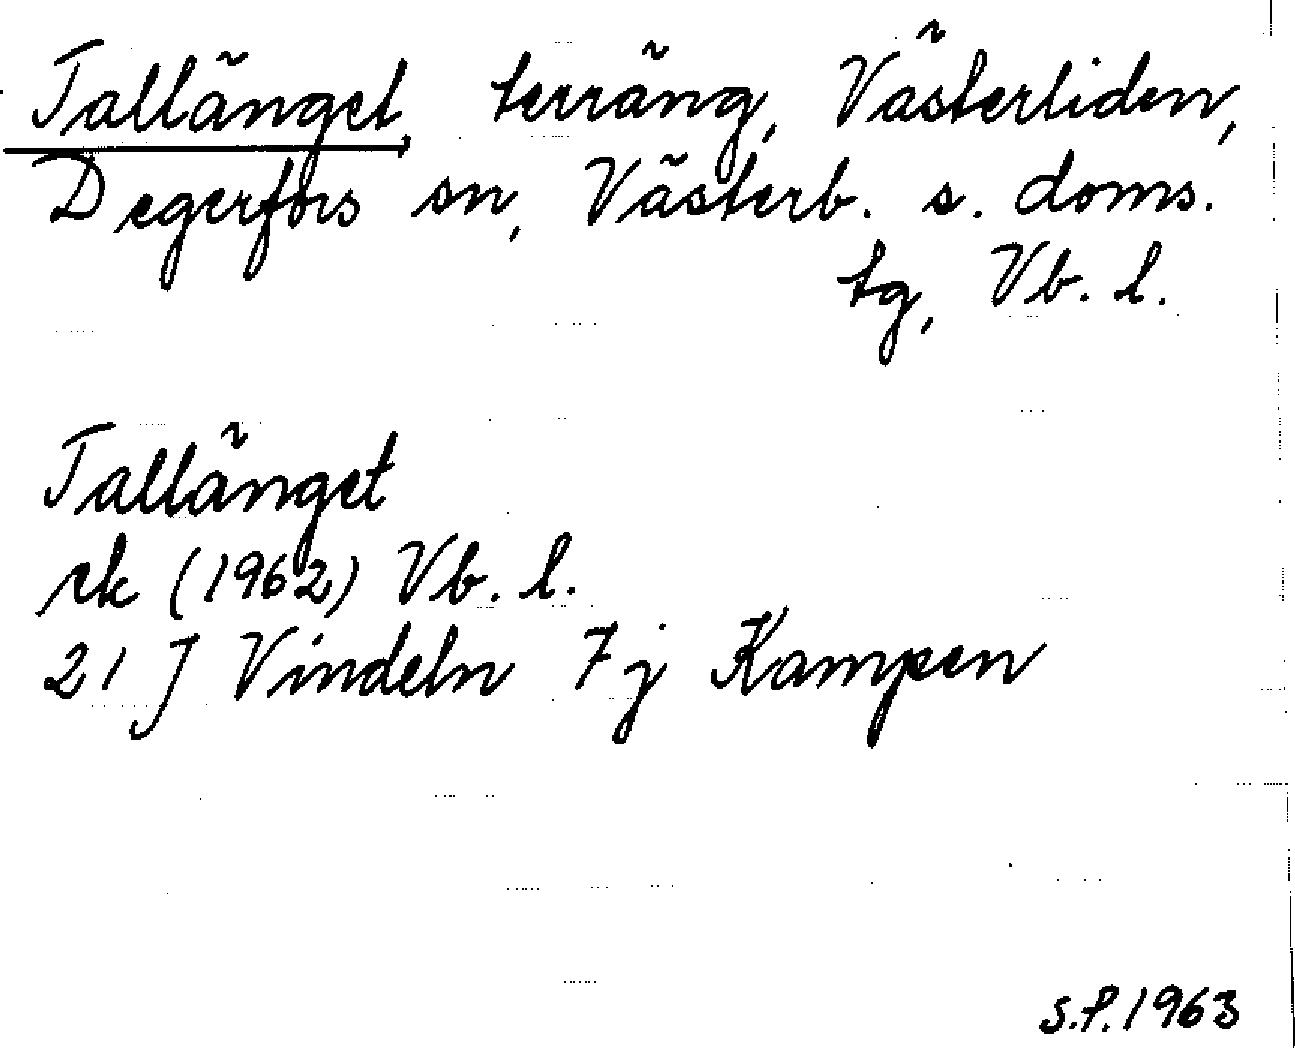 Tallänget, terräng, Västerliden,
Degerfors sn, Västerb. s. doms.
tg, Vb. l.
Tallänget
rk (1962) Vb. l.
21 J Vindeln 7j Kampen
S.P. 1963